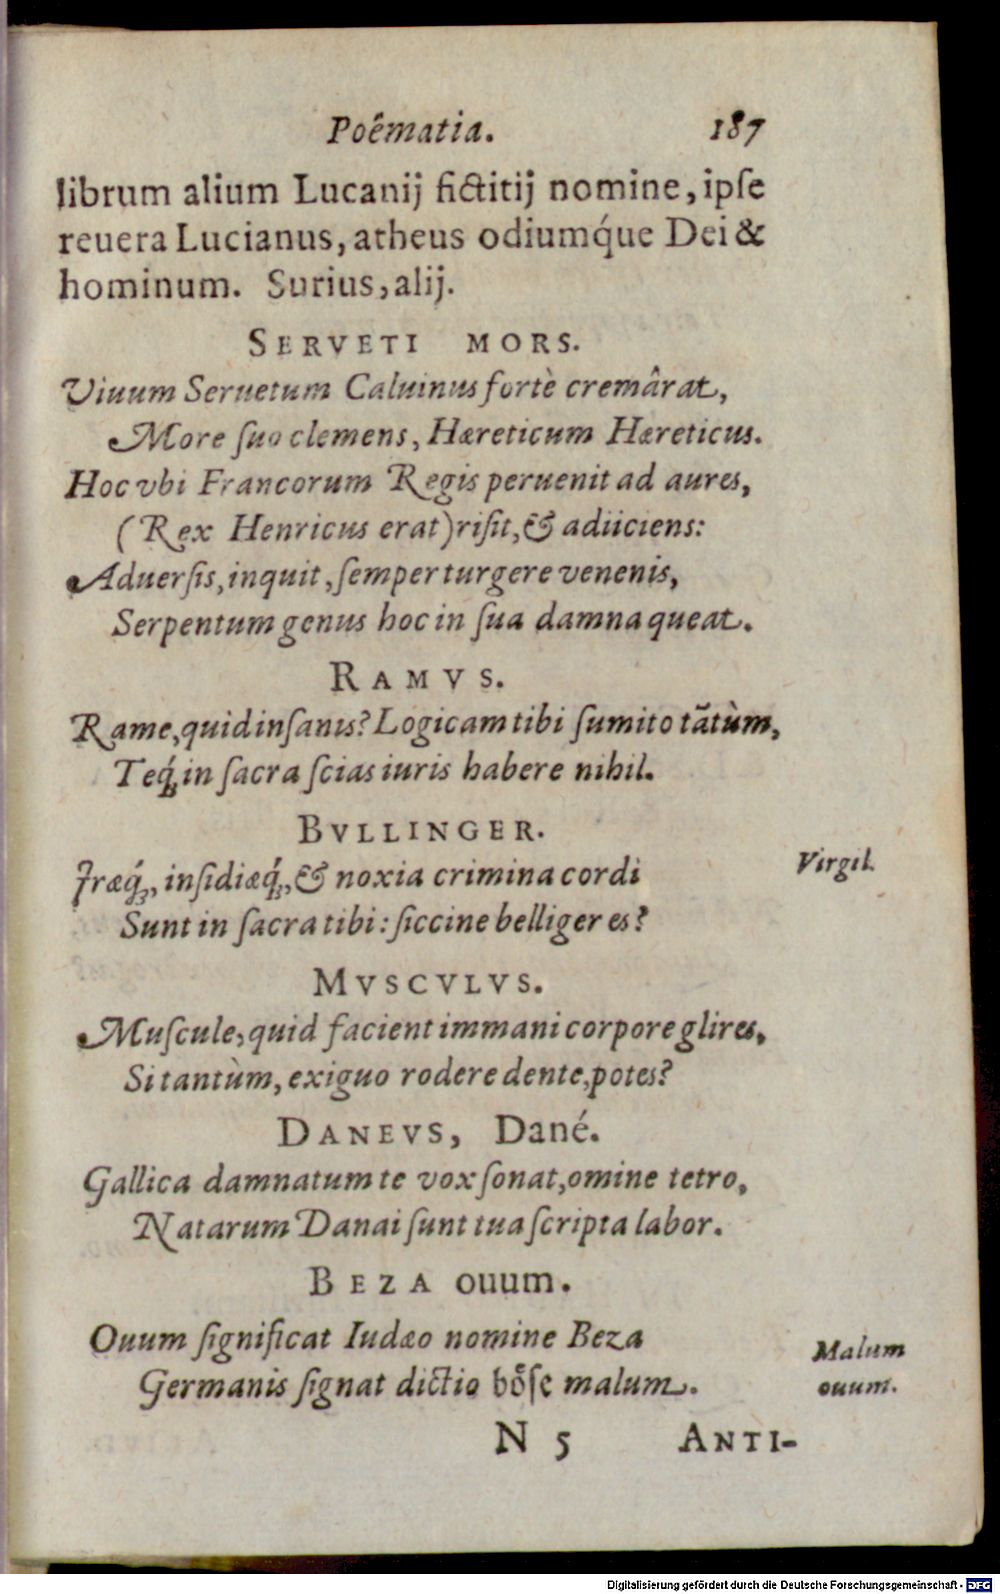 Poêmatia. 187
librum alium Lucanij fictitij nomine, ipſe
reuera Lucianus, atheus odiumq́ue Dei &
hominum. Surius, alij.
SERVETI MORS.
Viuum Seruetum Caluinus fortè cremârat,
More ſuo clemens, Hæreticum Hæreticus.
Hoc vbi Francorum Regis peruenit ad aures,
(Rex Henricus erat) riſit, & adiiciens:
Aduerſis, inquit, ſemper turgere venenis,
Serpentum genus hoc in ſua damna queat.
RAMVS.
Rame, quid inſanis? Logicam tibi ſumito tãtùm,
Teq́; in ſacra ſcias iuris habere nihil.
BVLLINGER.
Iræq́;, inſidiæq́;, & noxia crimina cordi
Virgil.
Sunt in ſacra tibi: ſiccine belliger es?
MVSCVLVS.
Muſcule, quid facient immani corpore glires,
Si tantùm, exiguo rodere dente, potes?
DANEVS, Dané.
Gallica damnatum te vox ſonat, omine tetro,
Natarum Danai ſunt tua ſcripta labor.
BEZA ouum.
Ouum ſignificat Iudæo nomine Beza
Germanis ſignat dictio boͤſe malum.
Malum
ouum.
N 5 ANTI-
Digitalisierung gefördert durch die Deutsche Forschungsgemeinschaft - DFG